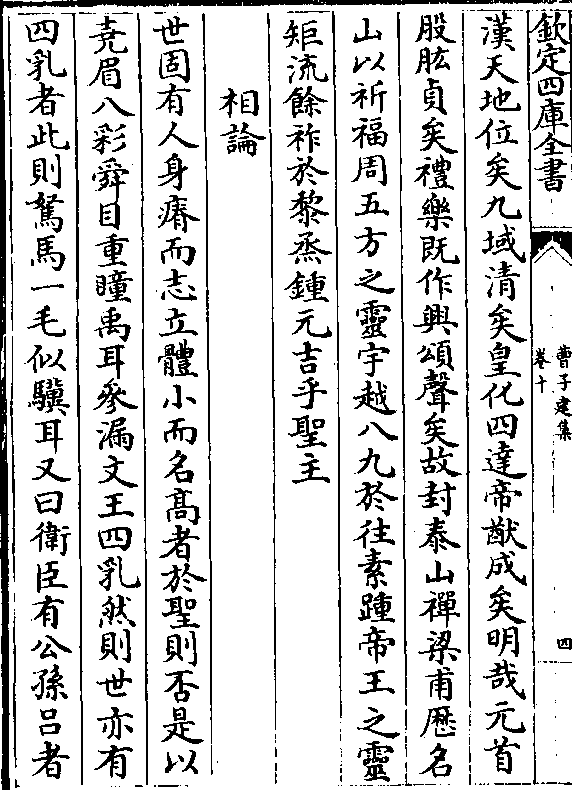 欽定四庫全書
曹子建集
卷十
四
漢天地位矣九域清矣皇化四達帝猷成矣明哉元首
股肱貞矣禮樂既作興頌聲矣故封泰山禪梁甫歴名
山以祈福周五方之靈宇越八九於往素踵帝王之靈
矩流餘祚於黎烝鍾元吉乎聖主
相論
世固有人身瘠而志立體小而名髙者於聖則否是以
堯眉八彩舜目重瞳禹耳參漏文王四乳然則世亦有
四乳者此則駑馬一毛似驥耳又曰衛臣有公孫吕者